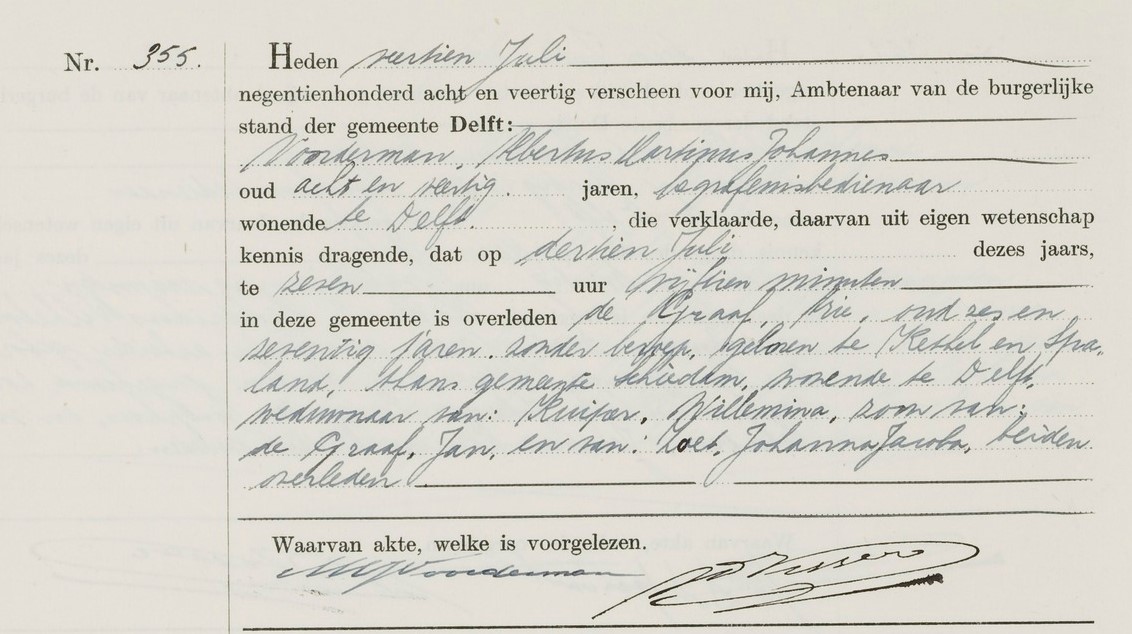 Nr. 355. Heden veertien Juli
negentienhonderd acht en veertig verscheen voor mij, Ambtenaar van de burgerlijke
stand der gemeente Delft:
Voorderman, Albertus Martinus Johannes
oud acht en veertig jaren, begrafenisbedienaar
wonende te Delft. , die verklaarde, daarvan uit eigen wetenschap
kennis dragende, dat op dertien Juli dezes jaars,
te zeven uur vijftien minuten
in deze gemeente is overleden de Graaf, Arie, oud zes en
zeventig jaren, zonder beroep, geboren te Kethel en Spa-
land, thans gemeente Schiedam, wonende te Delft,
weduwnaar van: Kuiper, Willemina, zoon van:
de Graaf, Jan, en van: Johanna Jacoba, beiden
overleden
Waarvan akte, welke is voorgelezen.
Voorderman Visser